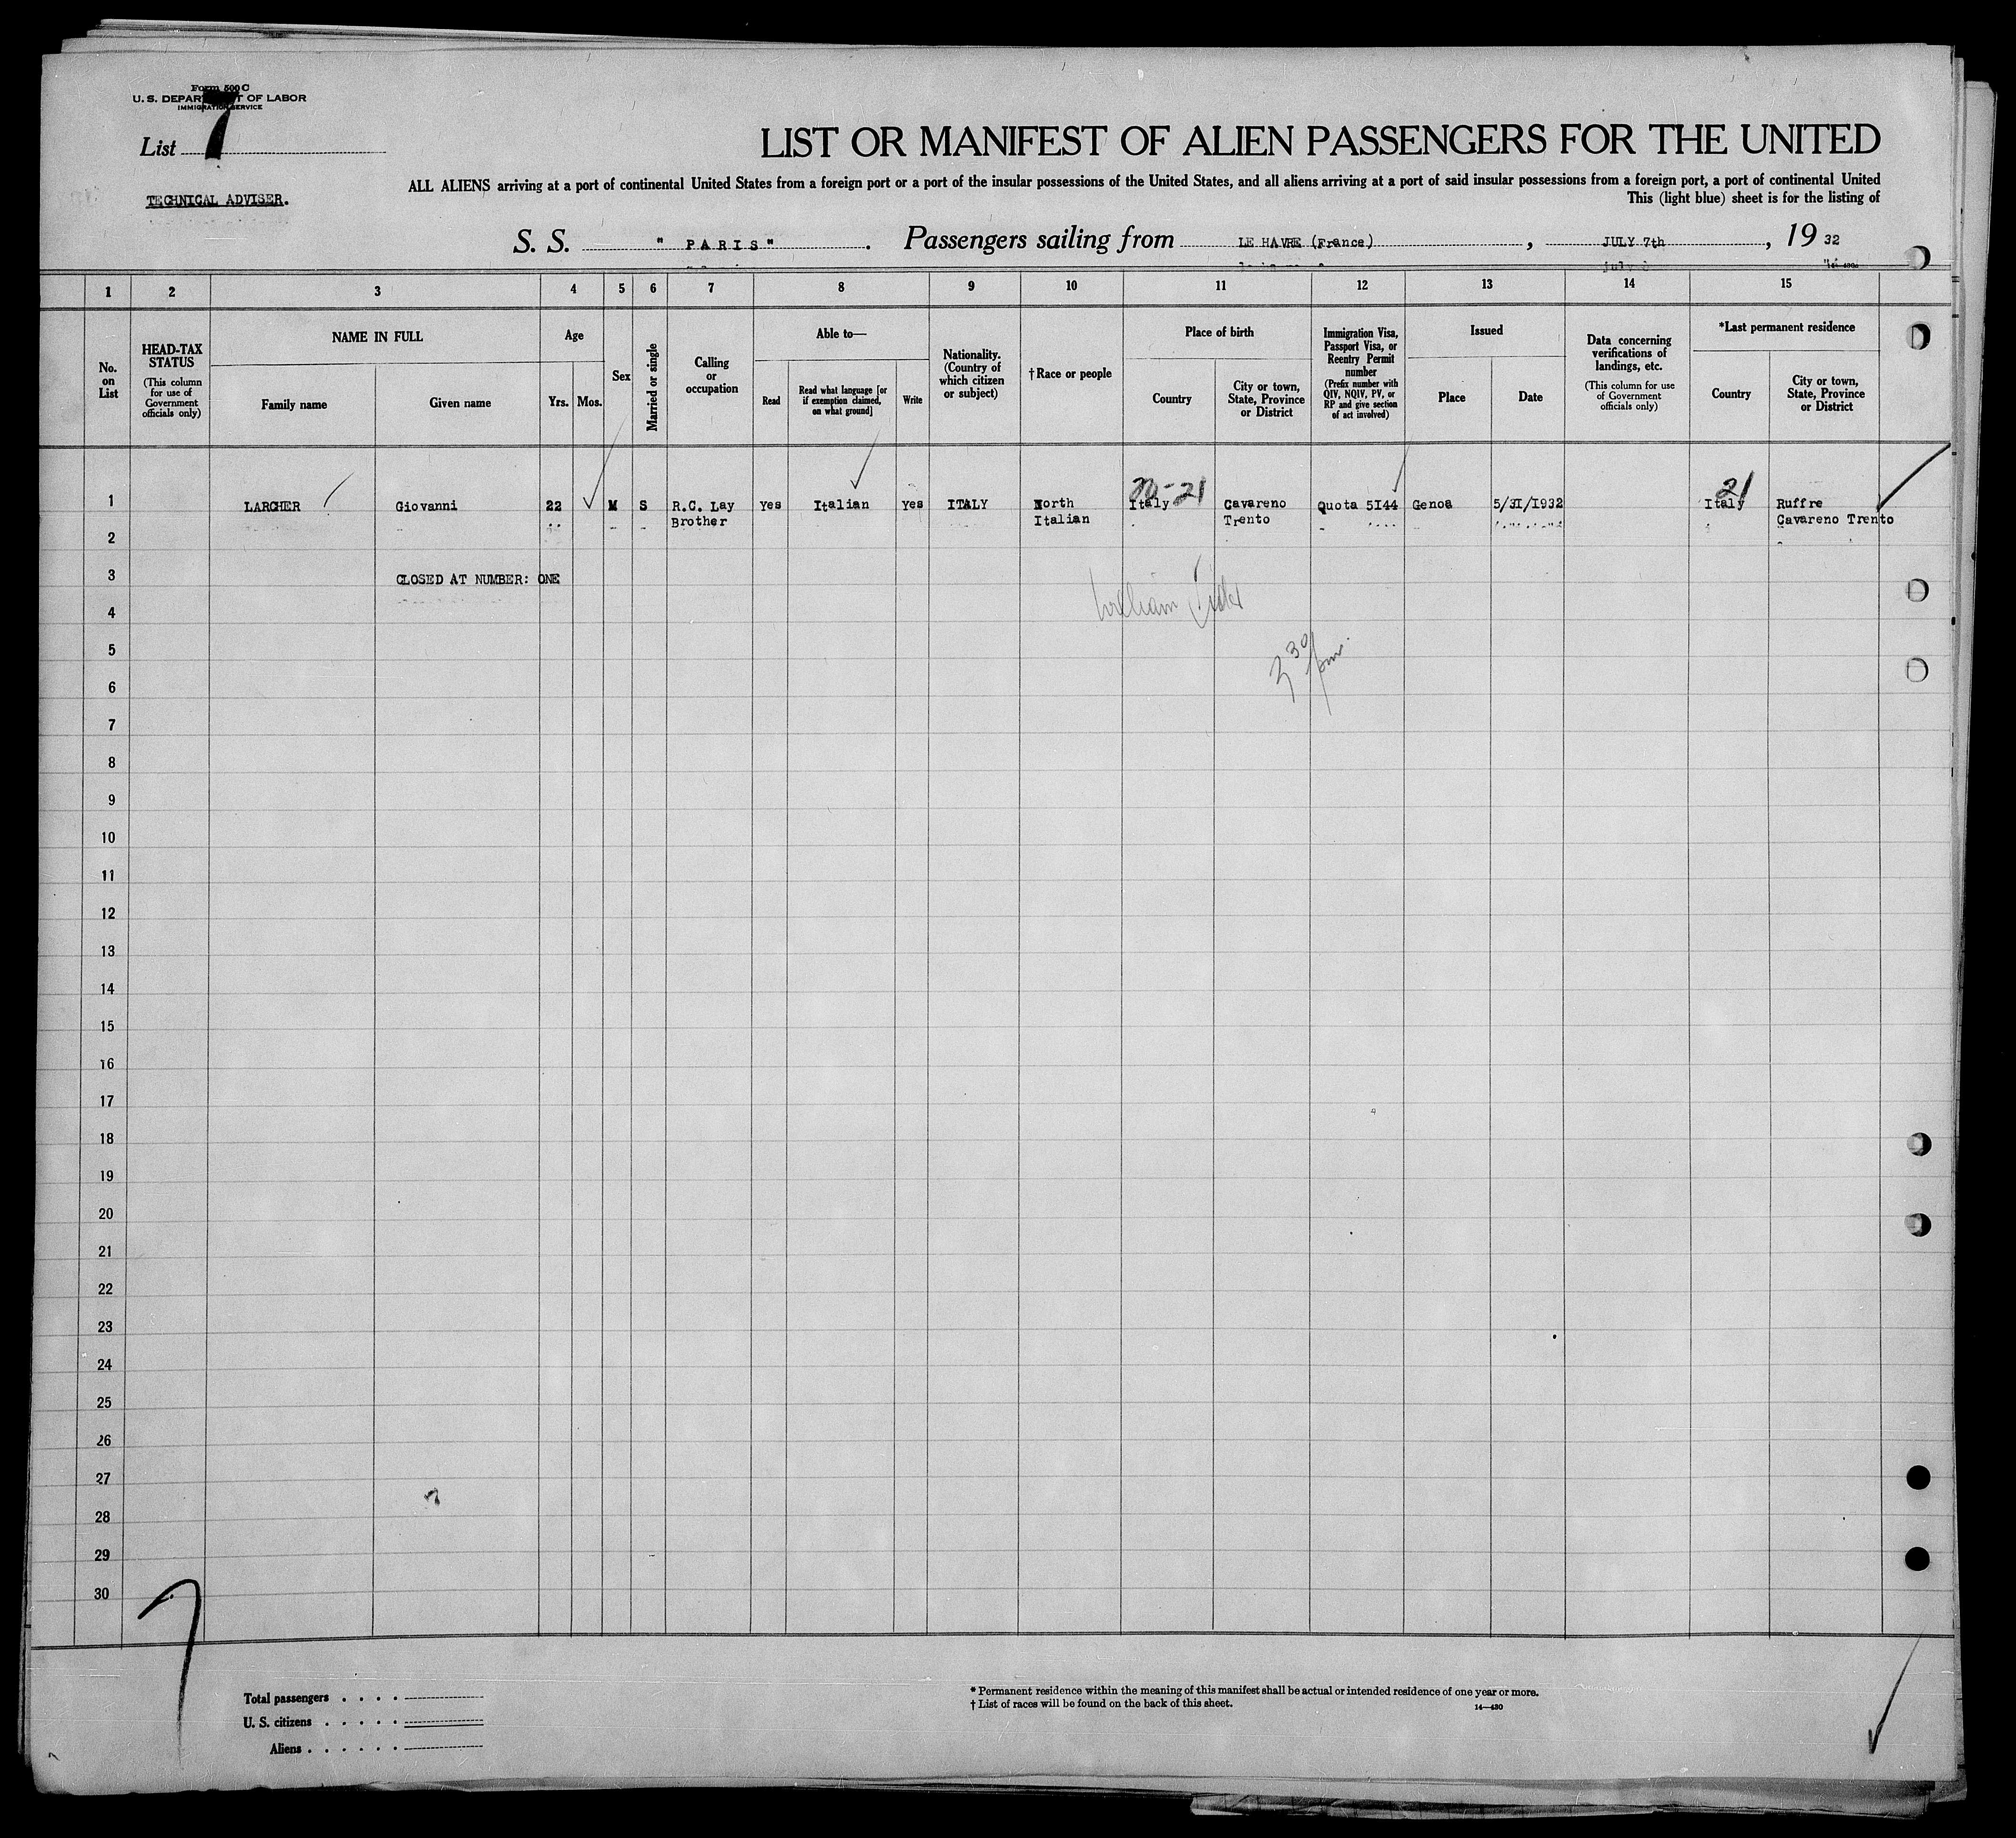 Form 500 C
U. S. DEPARTMENT OF LABOR
IMMIGRATION SERVICE
List 7
LIST OR MANIFEST OF ALIEN PASSENGERS FOR THE UNITED
ALL ALIENS arriving at a port of continental United States from a foreign port or a port of the insular possessions of the United States, and all aliens arriving at a port of said insular possessions from a foreign port, a port of continental United
TECHNICAL ADVISER.
This (light blue) sheet is for the listing of
S. S. " PARIS" . Passengers sailing from LE HAVRE (France) , JULY 7th , 19 32
1 2 3 4 5 6 7 8 9 10 11 12 13 14 15
No. on List
HEAD-TAX STATUS (This column for use of Government officials only)
NAME IN FULL
Family name
Given name
Age
Yrs. Mos.
Sex
Married or single
Calling or occupation
Able to—
Read
Read what language [or if exemption claimed, on what ground]
Write
Nationality. (Country of which citizen or subject)
†Race or people
Place of birth
Country
City or town, State, Province or District
Immigration Visa, Passport Visa, or Reentry Permit number (Prefix number with QIV, NQIV, PV, or RP and give section of act involved)
Issued
Place
Date
Data concerning verifications of landings, etc. (This column for use of Government officials only)
*Last permanent residence
Country
City or town, State, Province or District
20-21 21
1 LARCHER Giovanni 22 M S R.C. Lay Yes Italian Yes ITALY North Italy Cavareno Quota 5144 Genoa 5/31/1932 Italy Ruffre
Brother Italian Trento Cavareno Trento
2
3 CLOSED AT NUMBER: ONE
William
4
5
3 30 pm
6
7
8
9
10
11
12
13
14
15
16
17
18
19
20
21
22
23
24
25
26
27
28
29
30
7
Total passengers . . . .
U. S. citizens . . . . .
Aliens . . . . . .
* Permanent residence within the meaning of this manifest shall be actual or intended residence of one year or more.
† List of races will be found on the back of this sheet.
14—430